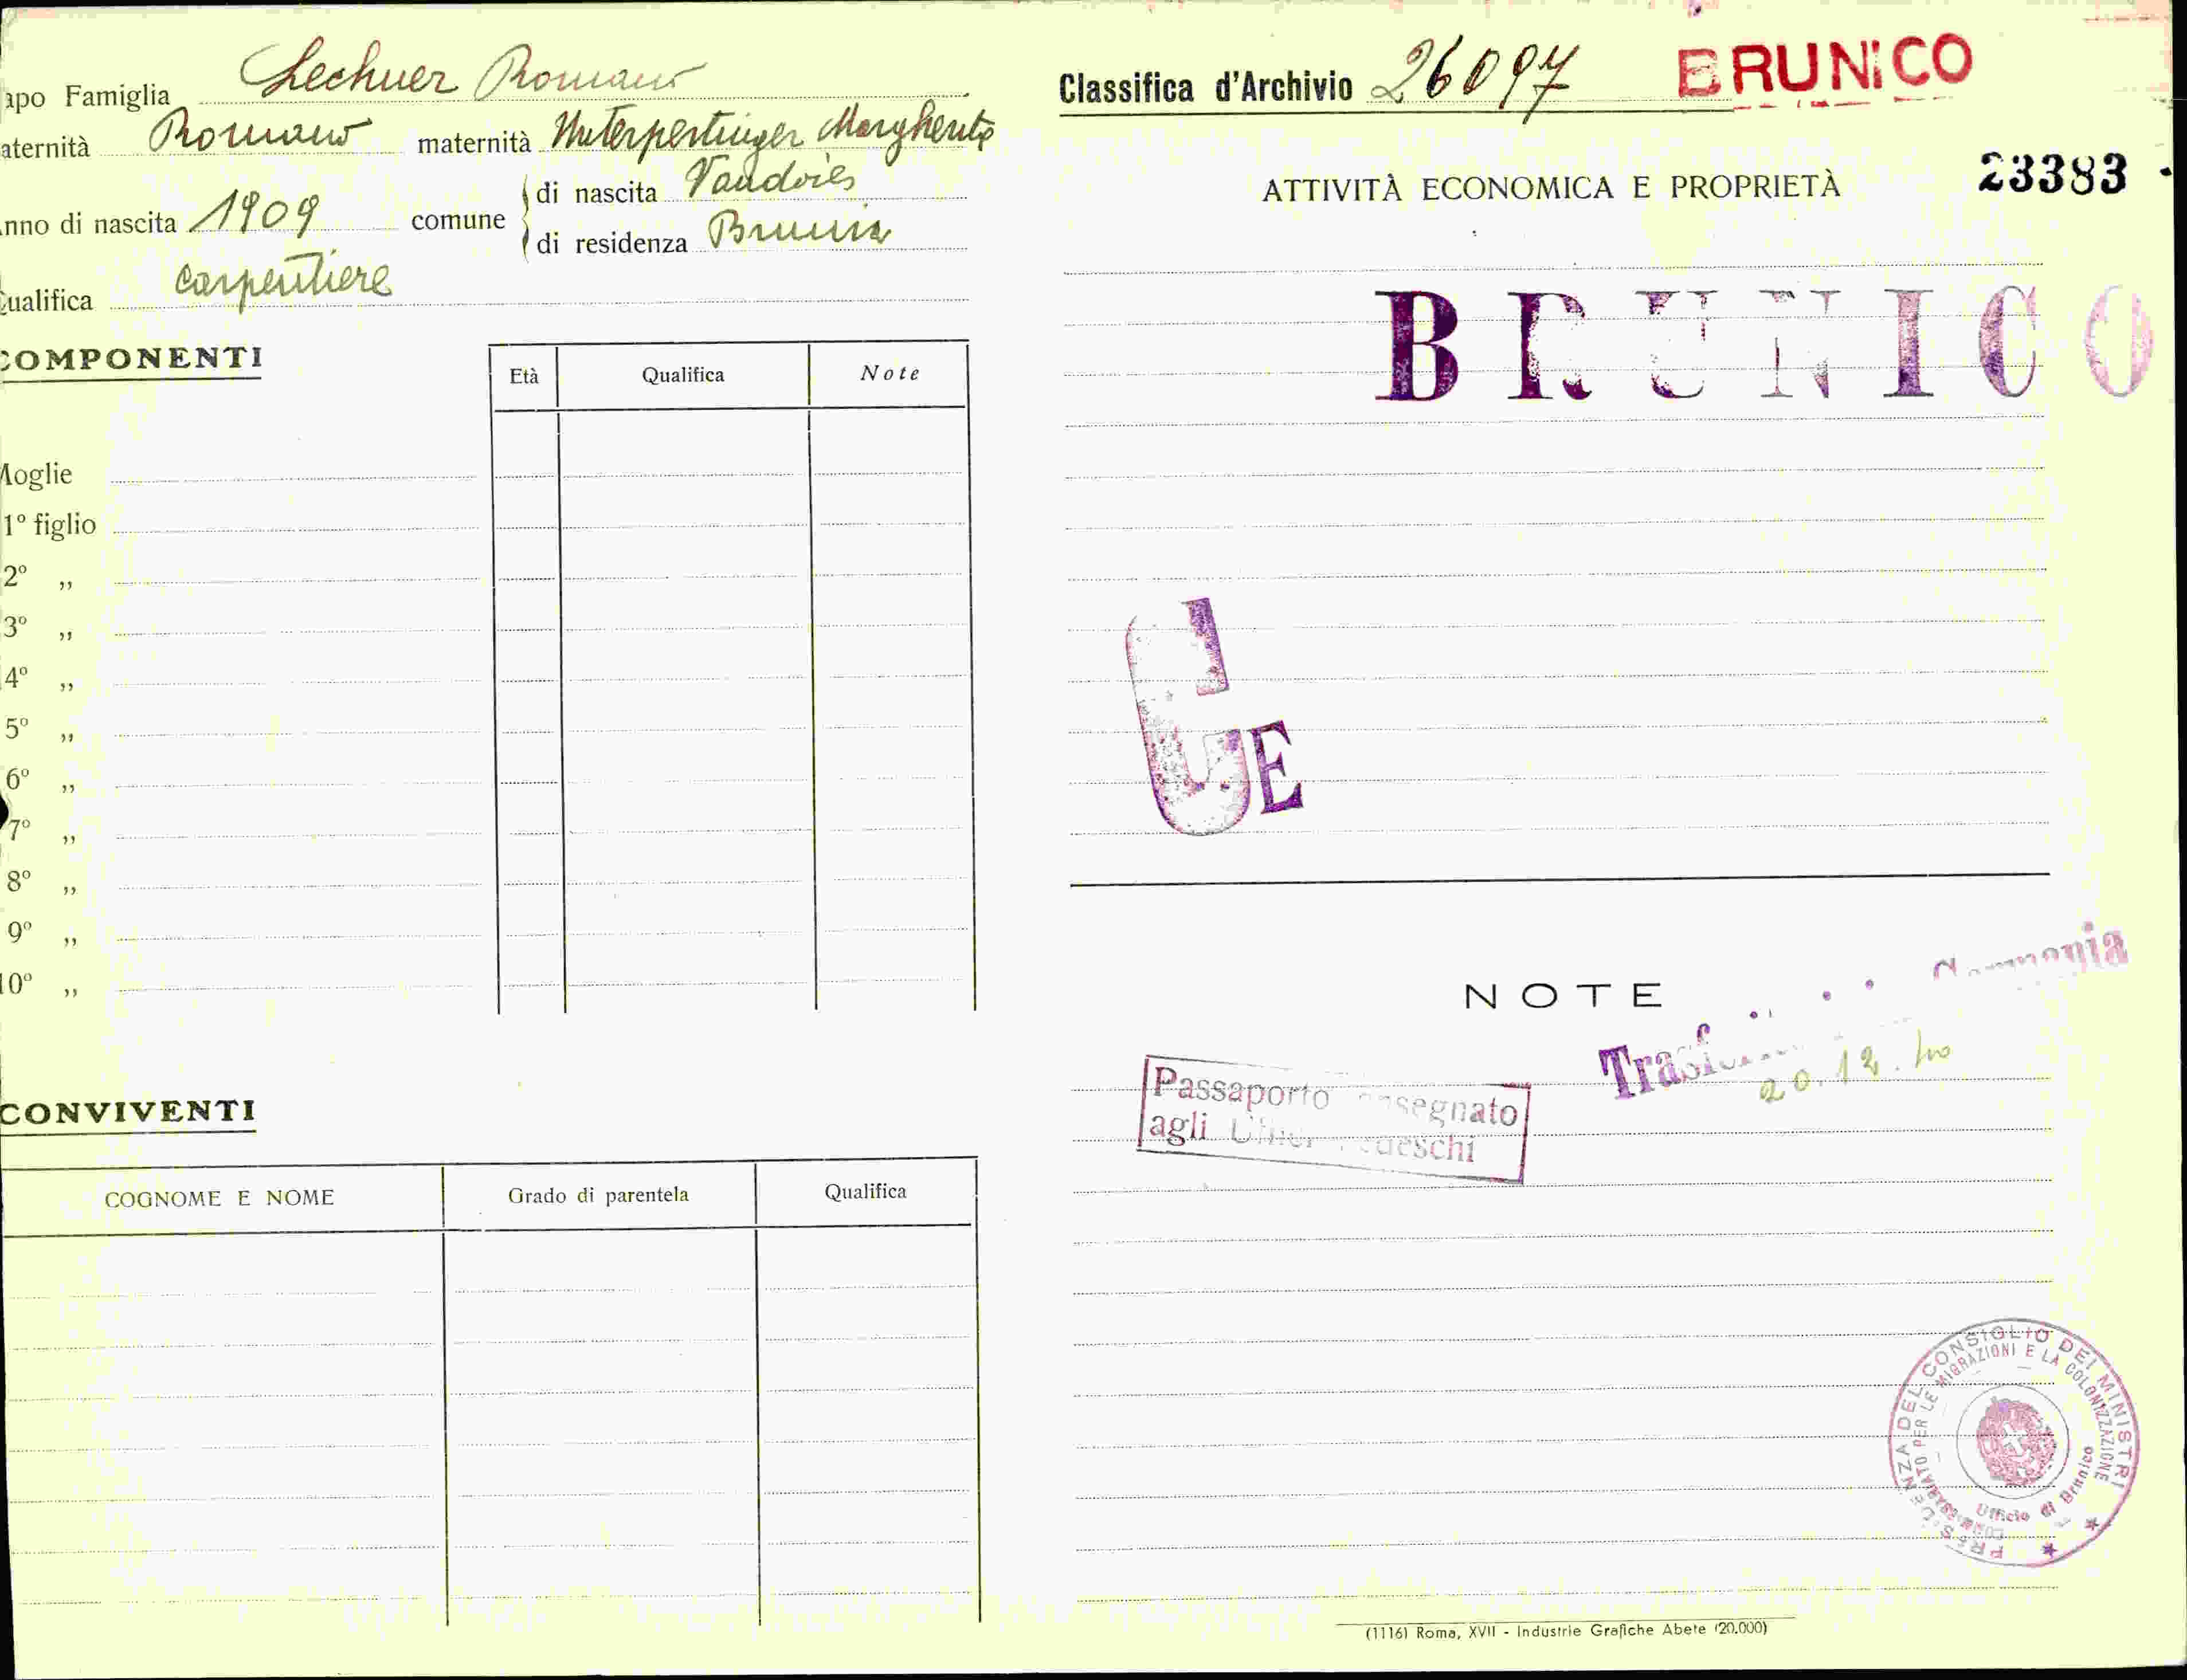 apo Famiglia Lechner Romano
aternità Romano maternità Unterpertinger Margherita
nno di nascita 1909 comune di nascita Vandoies
di residenza Brunico
ualifica carpentiere
COMPONENTI
Età Qualifica Note
Moglie
1º figlio
2º ,,
3º ,,
4º ,,
5º ,,
6º ,,
7º ,,
8º ,,
9º ,,
10º ,,
CONVIVENTI
COGNOME E NOME Grado di parentela Qualifica
Classifica d'Archivio 26097 BRUNICO
23383
ATTIVITÀ ECONOMICA E PROPRIETÀ
BRUNICO
E
NOTE
Germania
20.12.40
Passaporto consegnato
agli Uffici Tedeschi
PRESIDENZA DEL CONSIGLIO DEI MINISTRI
COMMISSARIATO PER LE MIGRAZIONI E LA COLONIZZAZIONE
Ufficio di Brunico
(1116) Roma, XVII - Industrie Grafiche Abete (20.000)